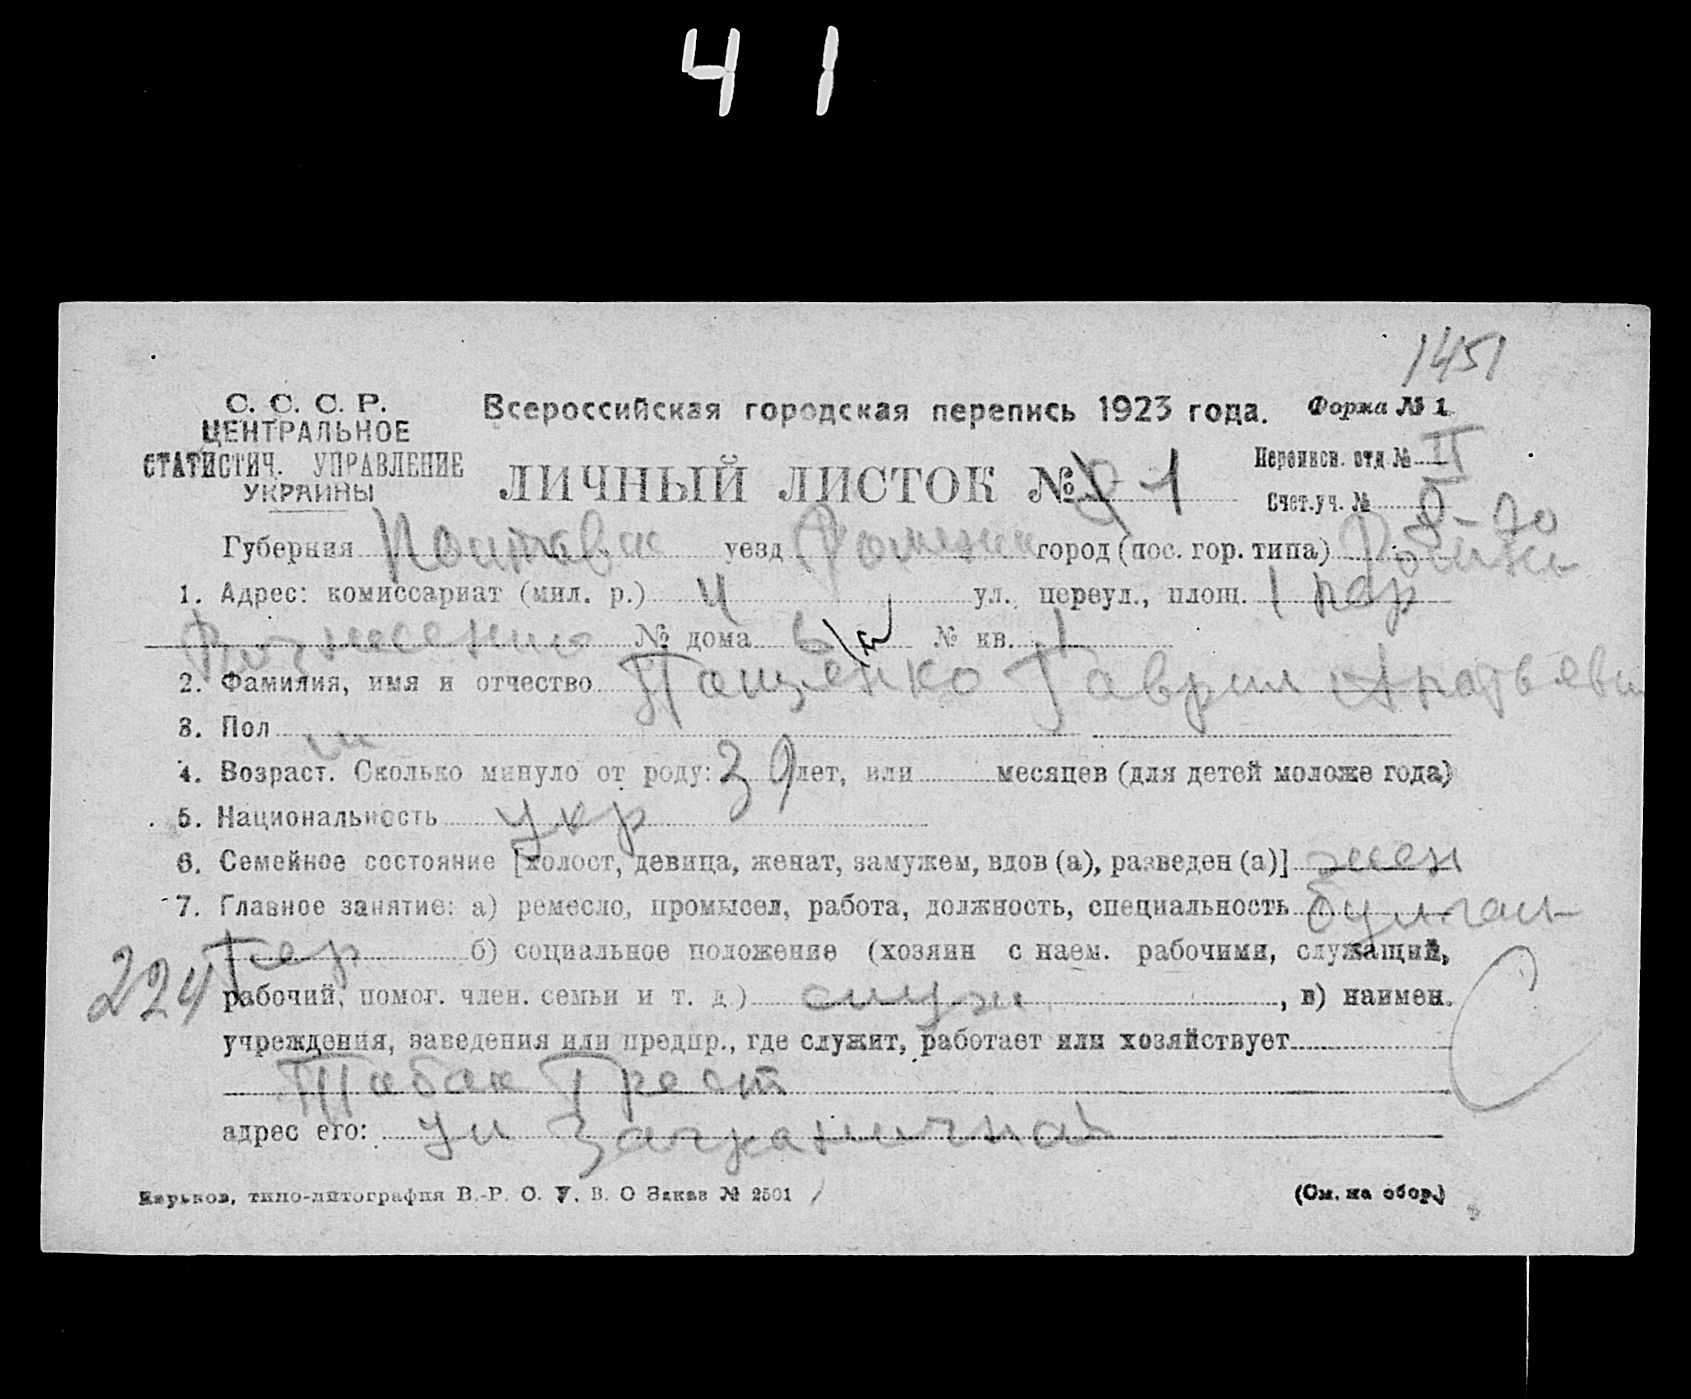 41
1451
С. С. С. Р.
ЦЕНТРАЛЬНОЕ
СТАТИСТИЧ. УПРАВЛЕНИЕ
УКРАИНЫ
Всероссийская городская перепись 1923 года. Форма № 1.
ЛИЧНЫЙ ЛИСТОК № 1
Переписн. отд. № II
Счет. уч. №
Губерния Полтавск уезд Роменск город (пос. гор. типа) Ромны
1. Адрес: комиссариат (мил. р.) 4 ул., переул., площ. 1 пер
Вознесенко № дома № кв. 1
2. Фамилия, имя и отчество Пащенко Гаврил
3. Пол м
4. Возраст. Сколько минуло от роду: 39 лет, или месяцев (для детей моложе года)
5. Национальность укр
6. Семейное состояние [холост, девица, женат, замужем, вдов (а), разведен (а)] жен
7. Главное занятие: а) ремесло, промысел, работа, должность, специальность бухгал-
224 тер б) социальное положение (хозяин с наем. рабочими, служащий,
рабочий, помог. член. семьи и т. д.) служ , в) наимен.
учреждения, заведения или предпр., где служит, работает или хозяйствует
Табак Трест
адрес его: ул
Харьков, типо-литография В.-Р. О. У. В. О Заказ № 2501
(См. на обор.)